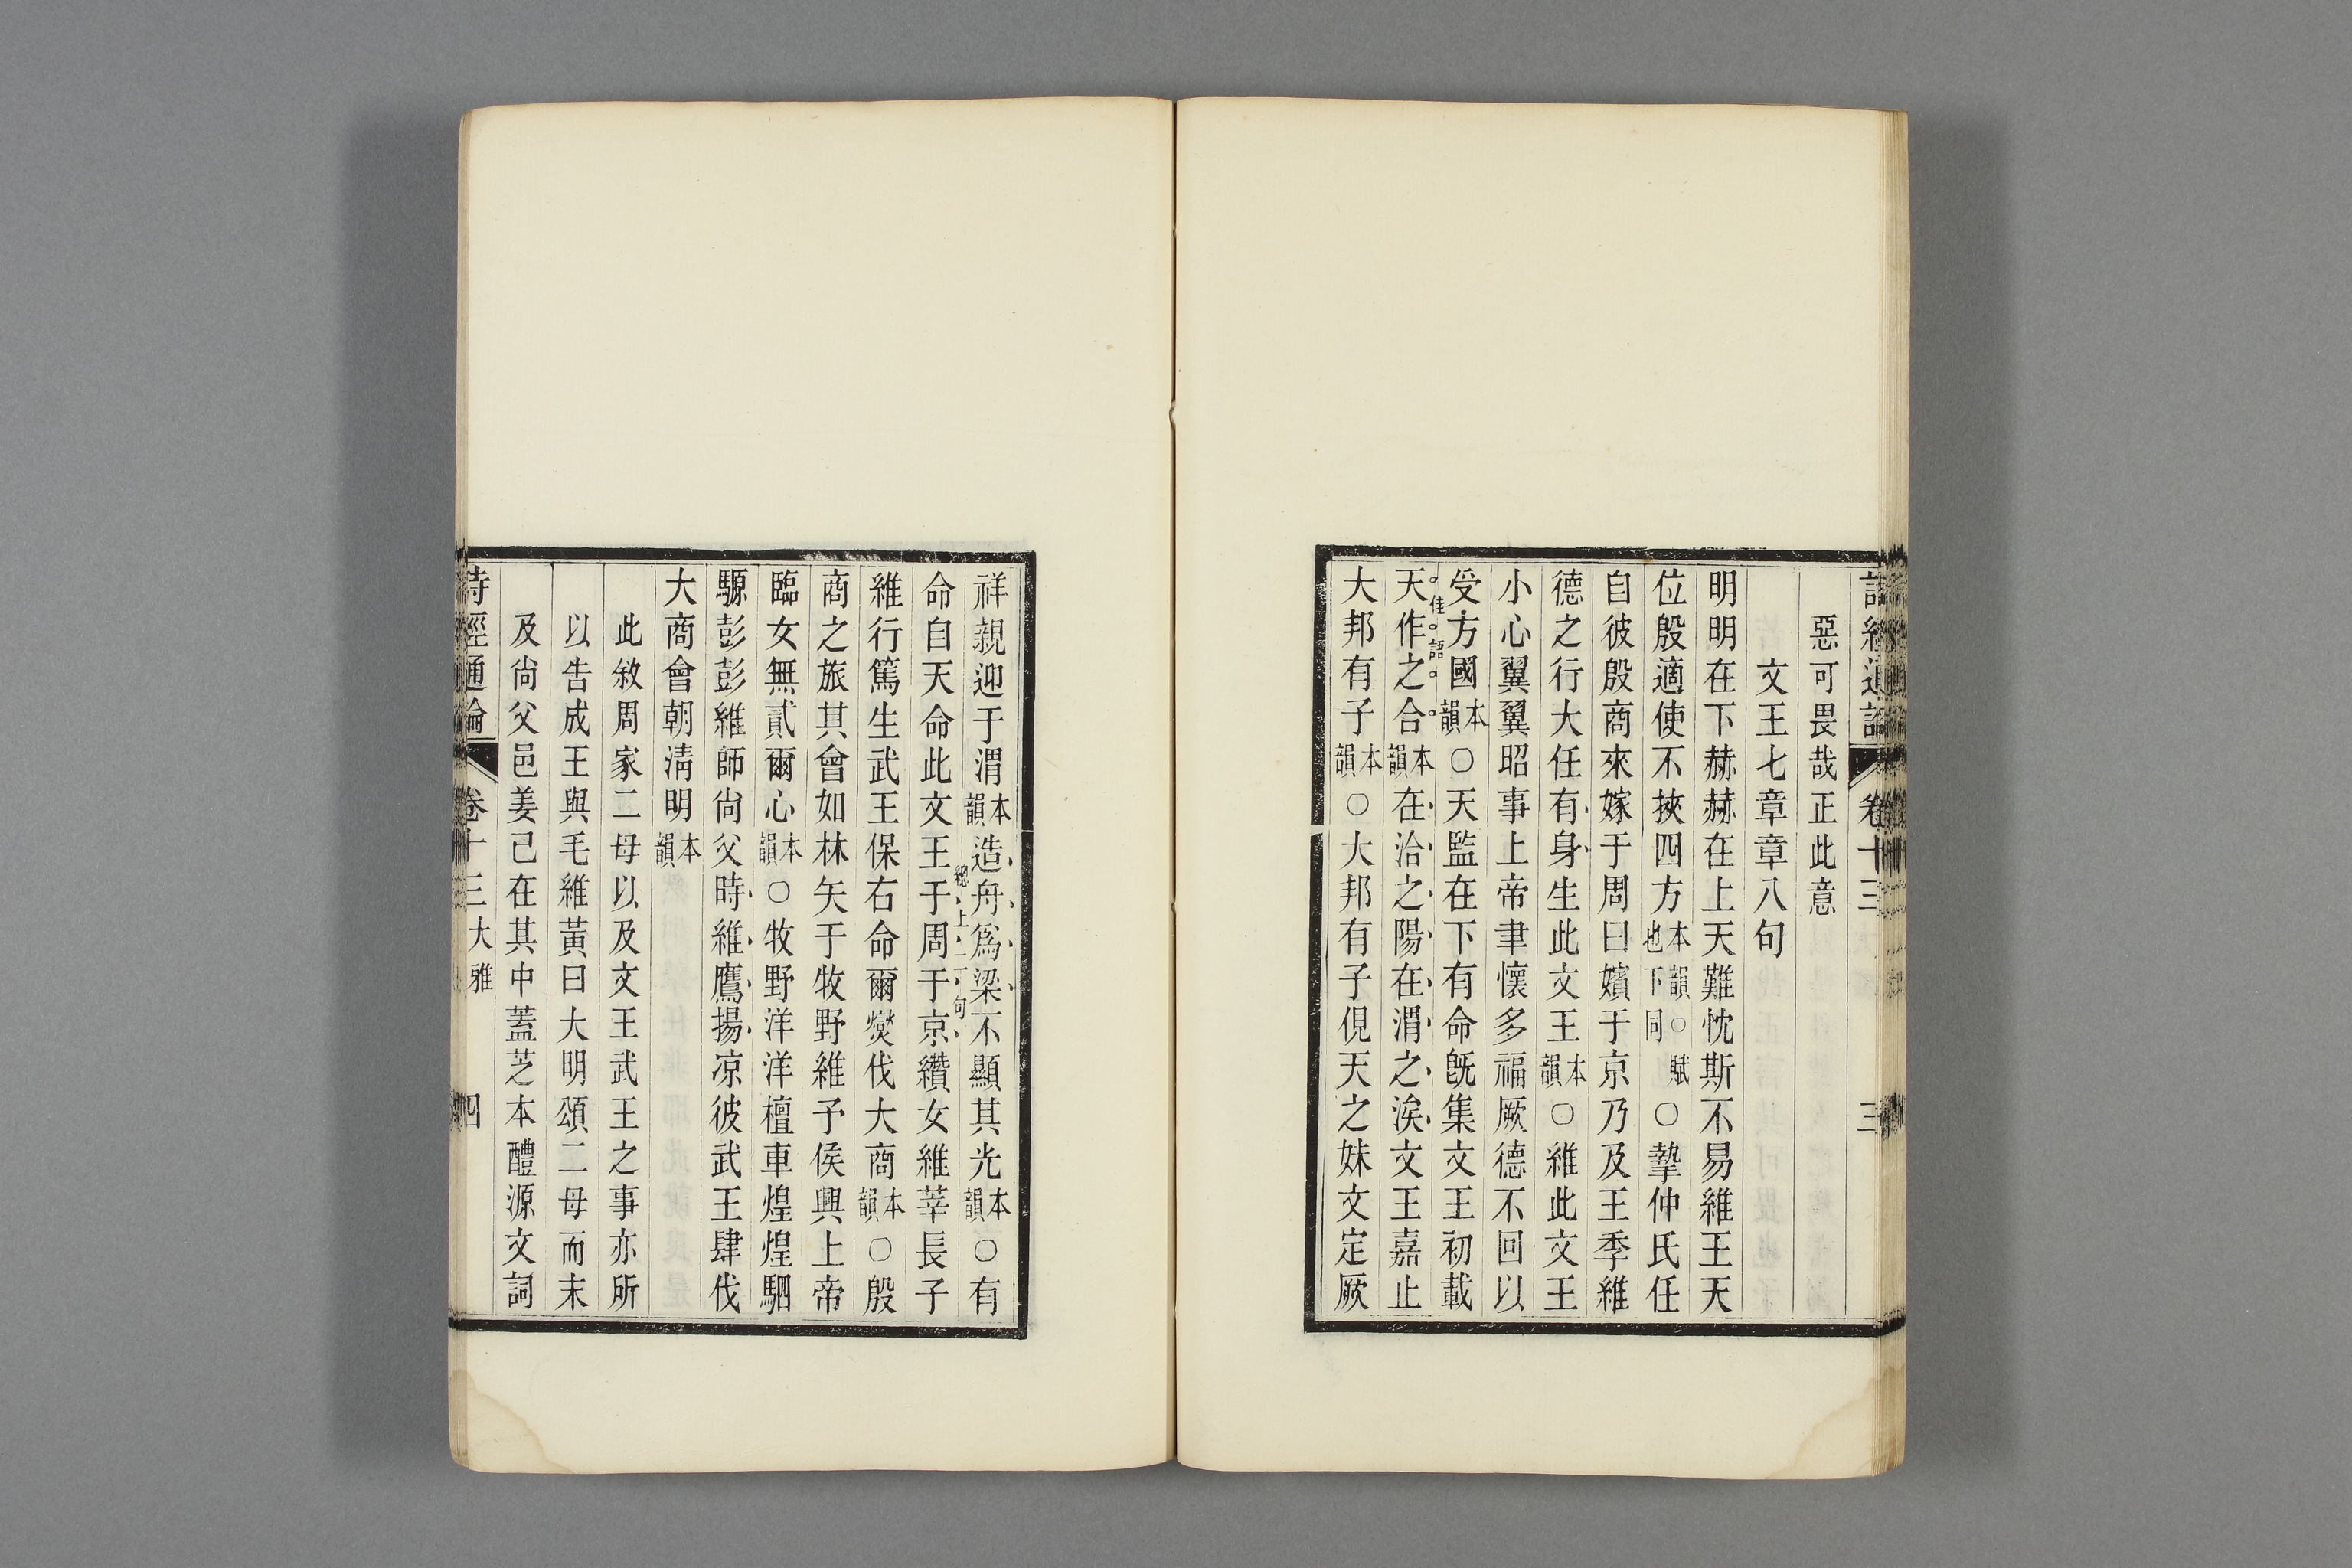 詩經通論 卷十三 三
惡可畏哉正此意
文王七章章八句
明明在下赫赫在上天難忱斯不易維王天
位殷適使不挾四方本韻○賦也下同○摯仲氏任
自彼殷商來嫁于周曰嬪于京乃及王季維
德之行大任有身生此文王本韻○維此文王
小心翼翼昭事上帝聿懷多福厥德不回以
受方國本韻○天監在下有命旣集文王初載
佳語
天作之合本韻在洽之陽在渭之涘文王嘉止
大邦有子本韻○大邦有子俔天之妹文定厥
祥親迎于渭本韻造舟爲梁不顯其光本韻○有
總上二句
命自天命此文王于周于京纘女維莘長子
維行篤生武王保右命爾燮伐大商本韻○殷
商之旅其會如林矢于牧野維予侯興上帝
臨女無貳爾心本韻○牧野洋洋檀車煌煌駟
騵彭彭維師尙父時維鷹揚凉彼武王肆伐
大商會朝淸明本韻
此敘周家二母以及文王武王之事亦所
以告成王與毛維黃曰大明頌二母而末
及尙父邑姜己在其中蓋芝本醴源文詞
詩經通論 卷十三 大雅 四